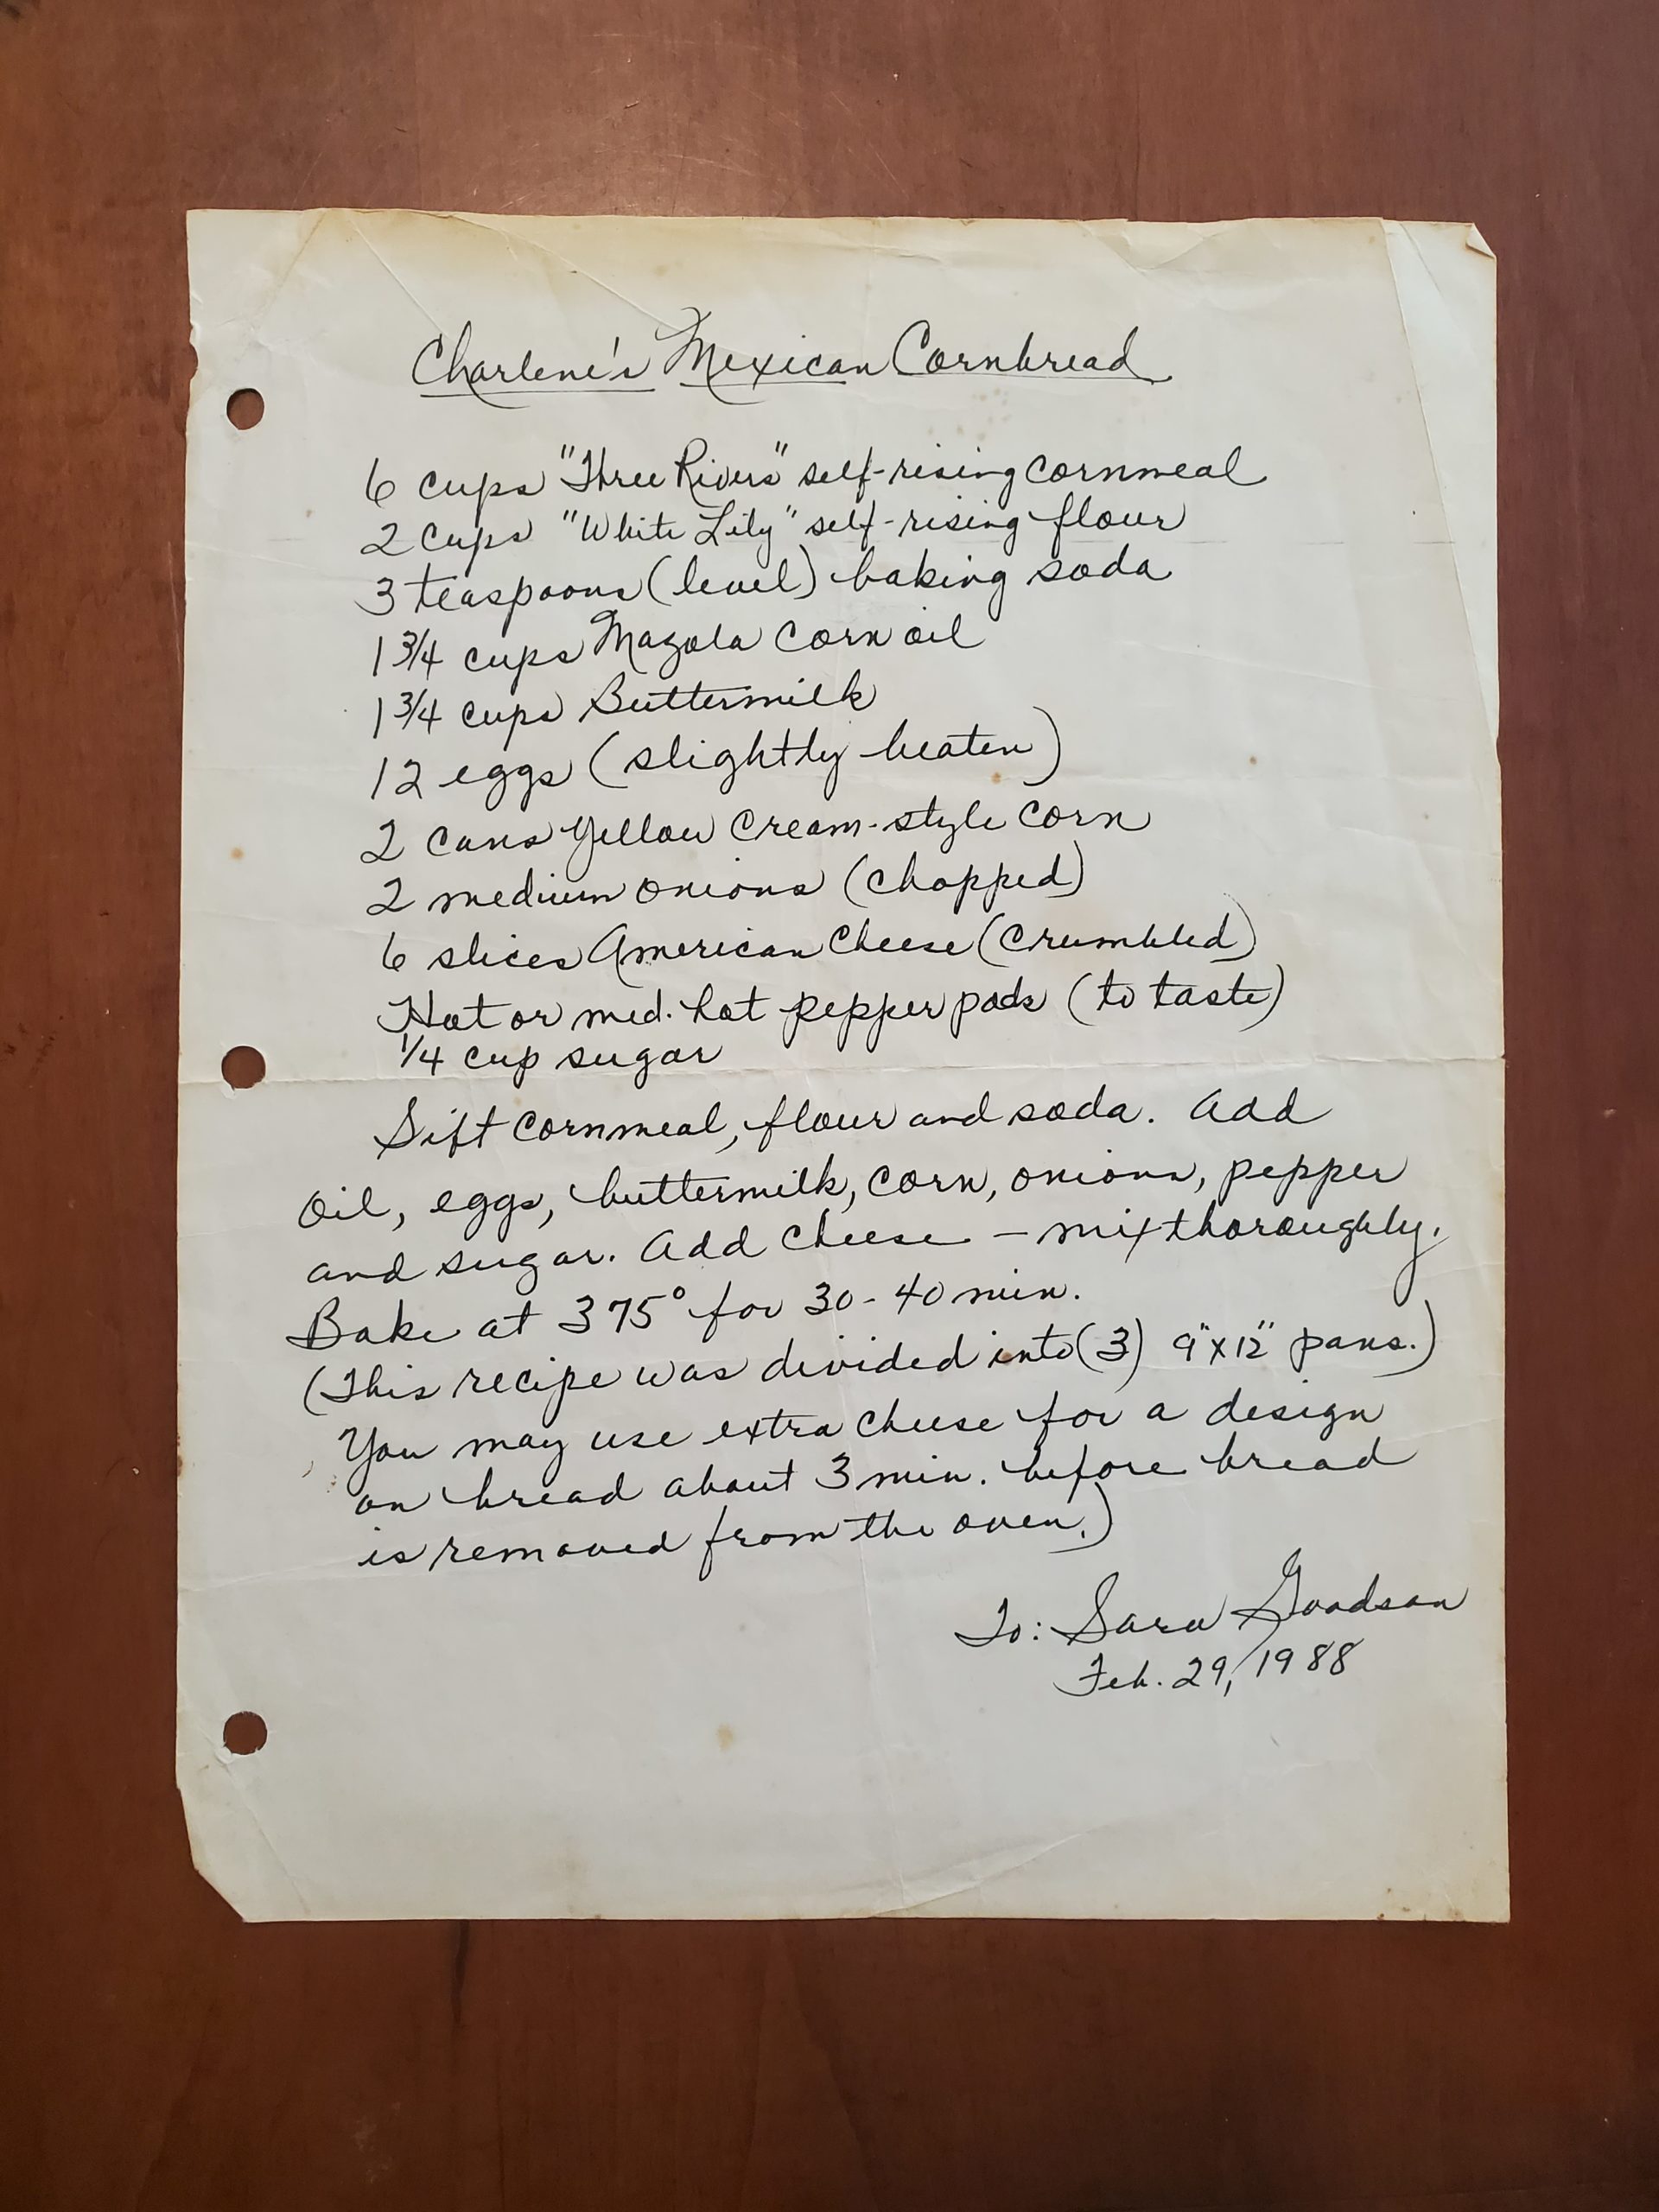 Charlene's Mexican Cornbread
6 cups "Three Rivers" self-rising cornmeal
2 cups "White Lily" self-rising flour
3 teaspoons (level) baking soda
1 3/4 cups Mazola Corn oil
1 3/4 cups Buttermilk
12 eggs (slightly beaten)
2 cans Yellow Cream-style corn
2 medium onions (chopped)
6 slices American Cheese (crumbled)
Hot or med. hot pepper pods (to taste)
1/4 cup sugar
Sift cornmeal, flour and soda. Add
oil, eggs, buttermilk, corn, onions, pepper
and sugar. Add cheese - mix thoroughly.
Bake at 375° for 30-40 min.
(This recipe was divided into (3) 9"x12" pans.)
You may use extra cheese for a design
on bread about 3 min. before bread
is removed from the oven.)
To: Sara Goodson
Feb. 29, 1988